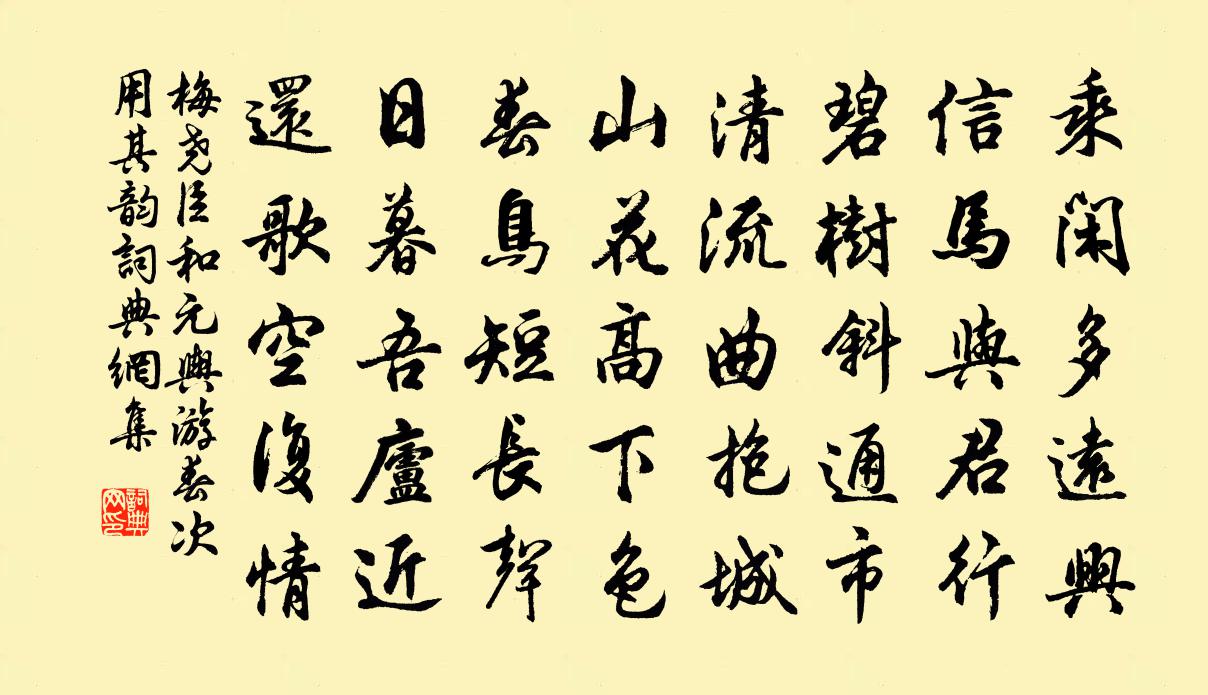 乘閑多遠興
信馬與君行
碧樹斜通市
清流曲抱城
山花高下色
春鳥短長聲
日暮吾廬近
還歌空復情
梅尧臣和元輿游春次
用其韵詞典網集
詞典网印